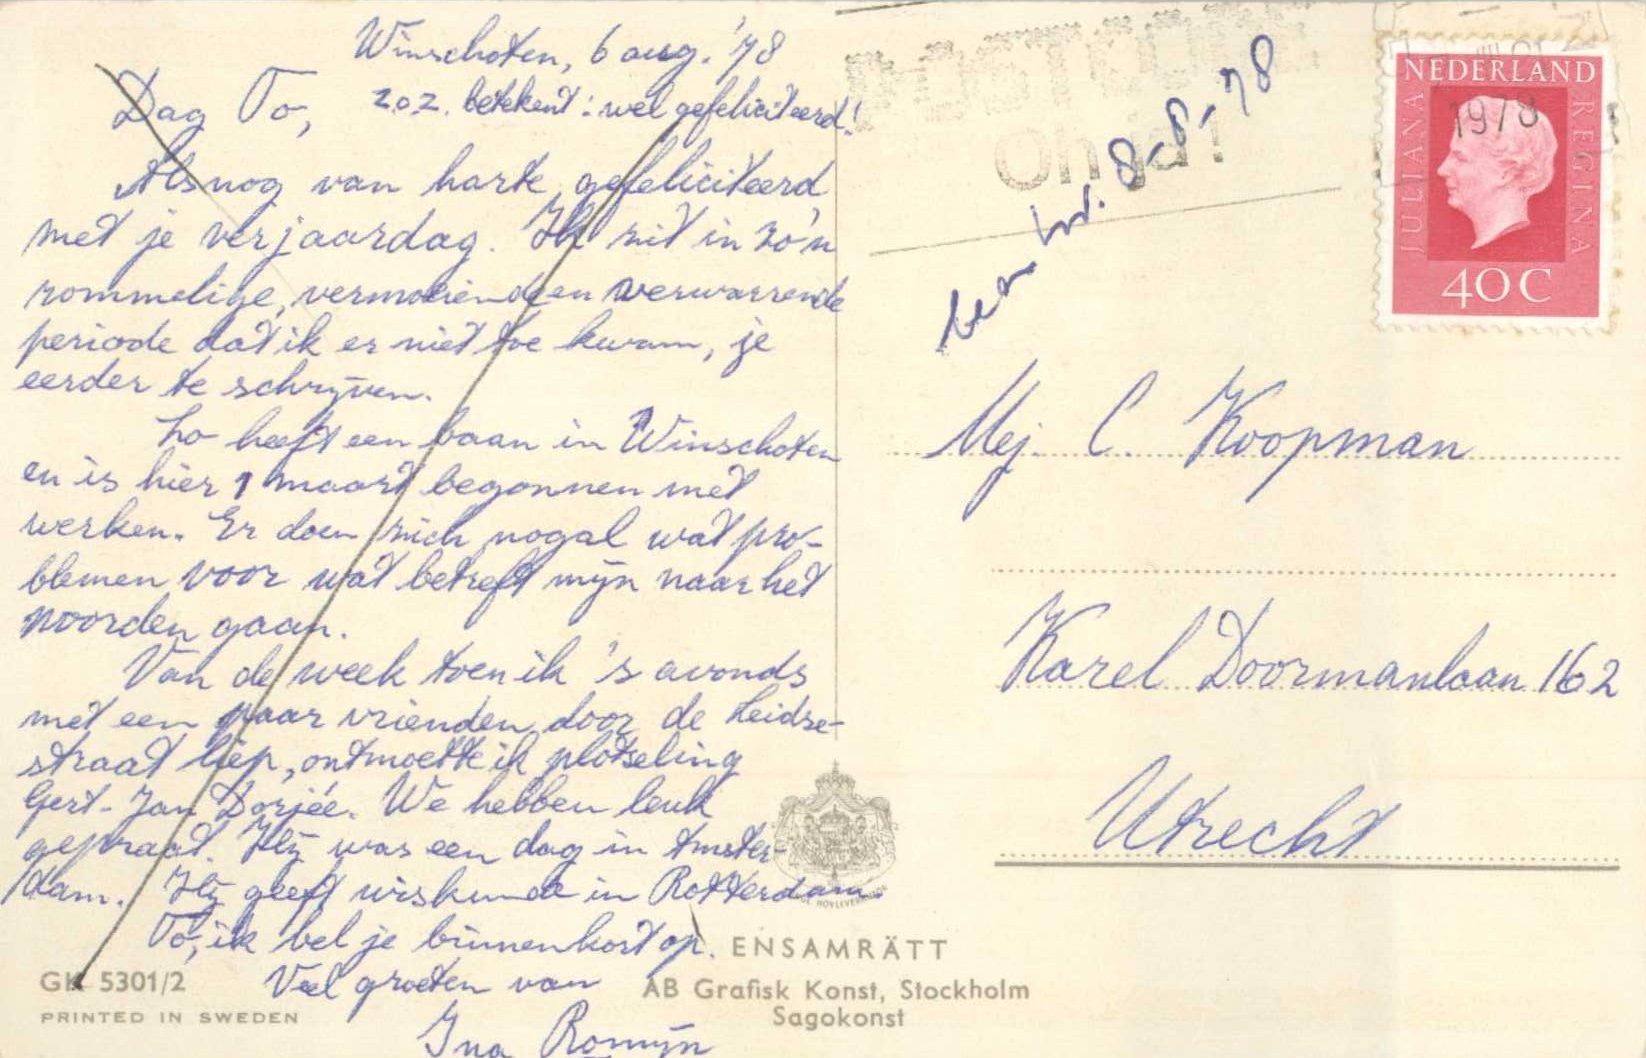 Winschoten, 6 aug. '78
Dag To, z.o.z. betekent: wel gefeliciteerd!
Alsnog van harte gefeliciteerd
met je verjaardag. Ik zit in zo'n
rommelige, vermoeiende en verwarrende
periode dat ik er niet toe kwam, je
eerder te schrijven.
Lo heeft een baan in Winschoten
en is hier 1 maart begonnen met
werken. Er doen zich nogal wat pro-
blemen voor wat betreft mijn naar het
noorden gaan.
Van de week toen ik 's avonds
met een paar vrienden door de Leidse-
straat liep, ontmoette ik plotseling
Gert-Jan Dorjée. We hebben leuk
gepraat. Hij was een dag in Amster-
dam. Hij geeft wiskunde in Rotterdam.
To, ik bel je binnenkort op.
Veel groeten van
Ina Romijn
GK 5301/2
PRINTED IN SWEDEN
ENSAMRÄTT
AB Grafisk Konst, Stockholm
Sagokonst
POSTCODE
Oh ja!
8-8-'78
NEDERLAND
JULIANA REGINA
1978
40C
Mej. C. Koopman
Karel Doormanlaan 162
Utrecht